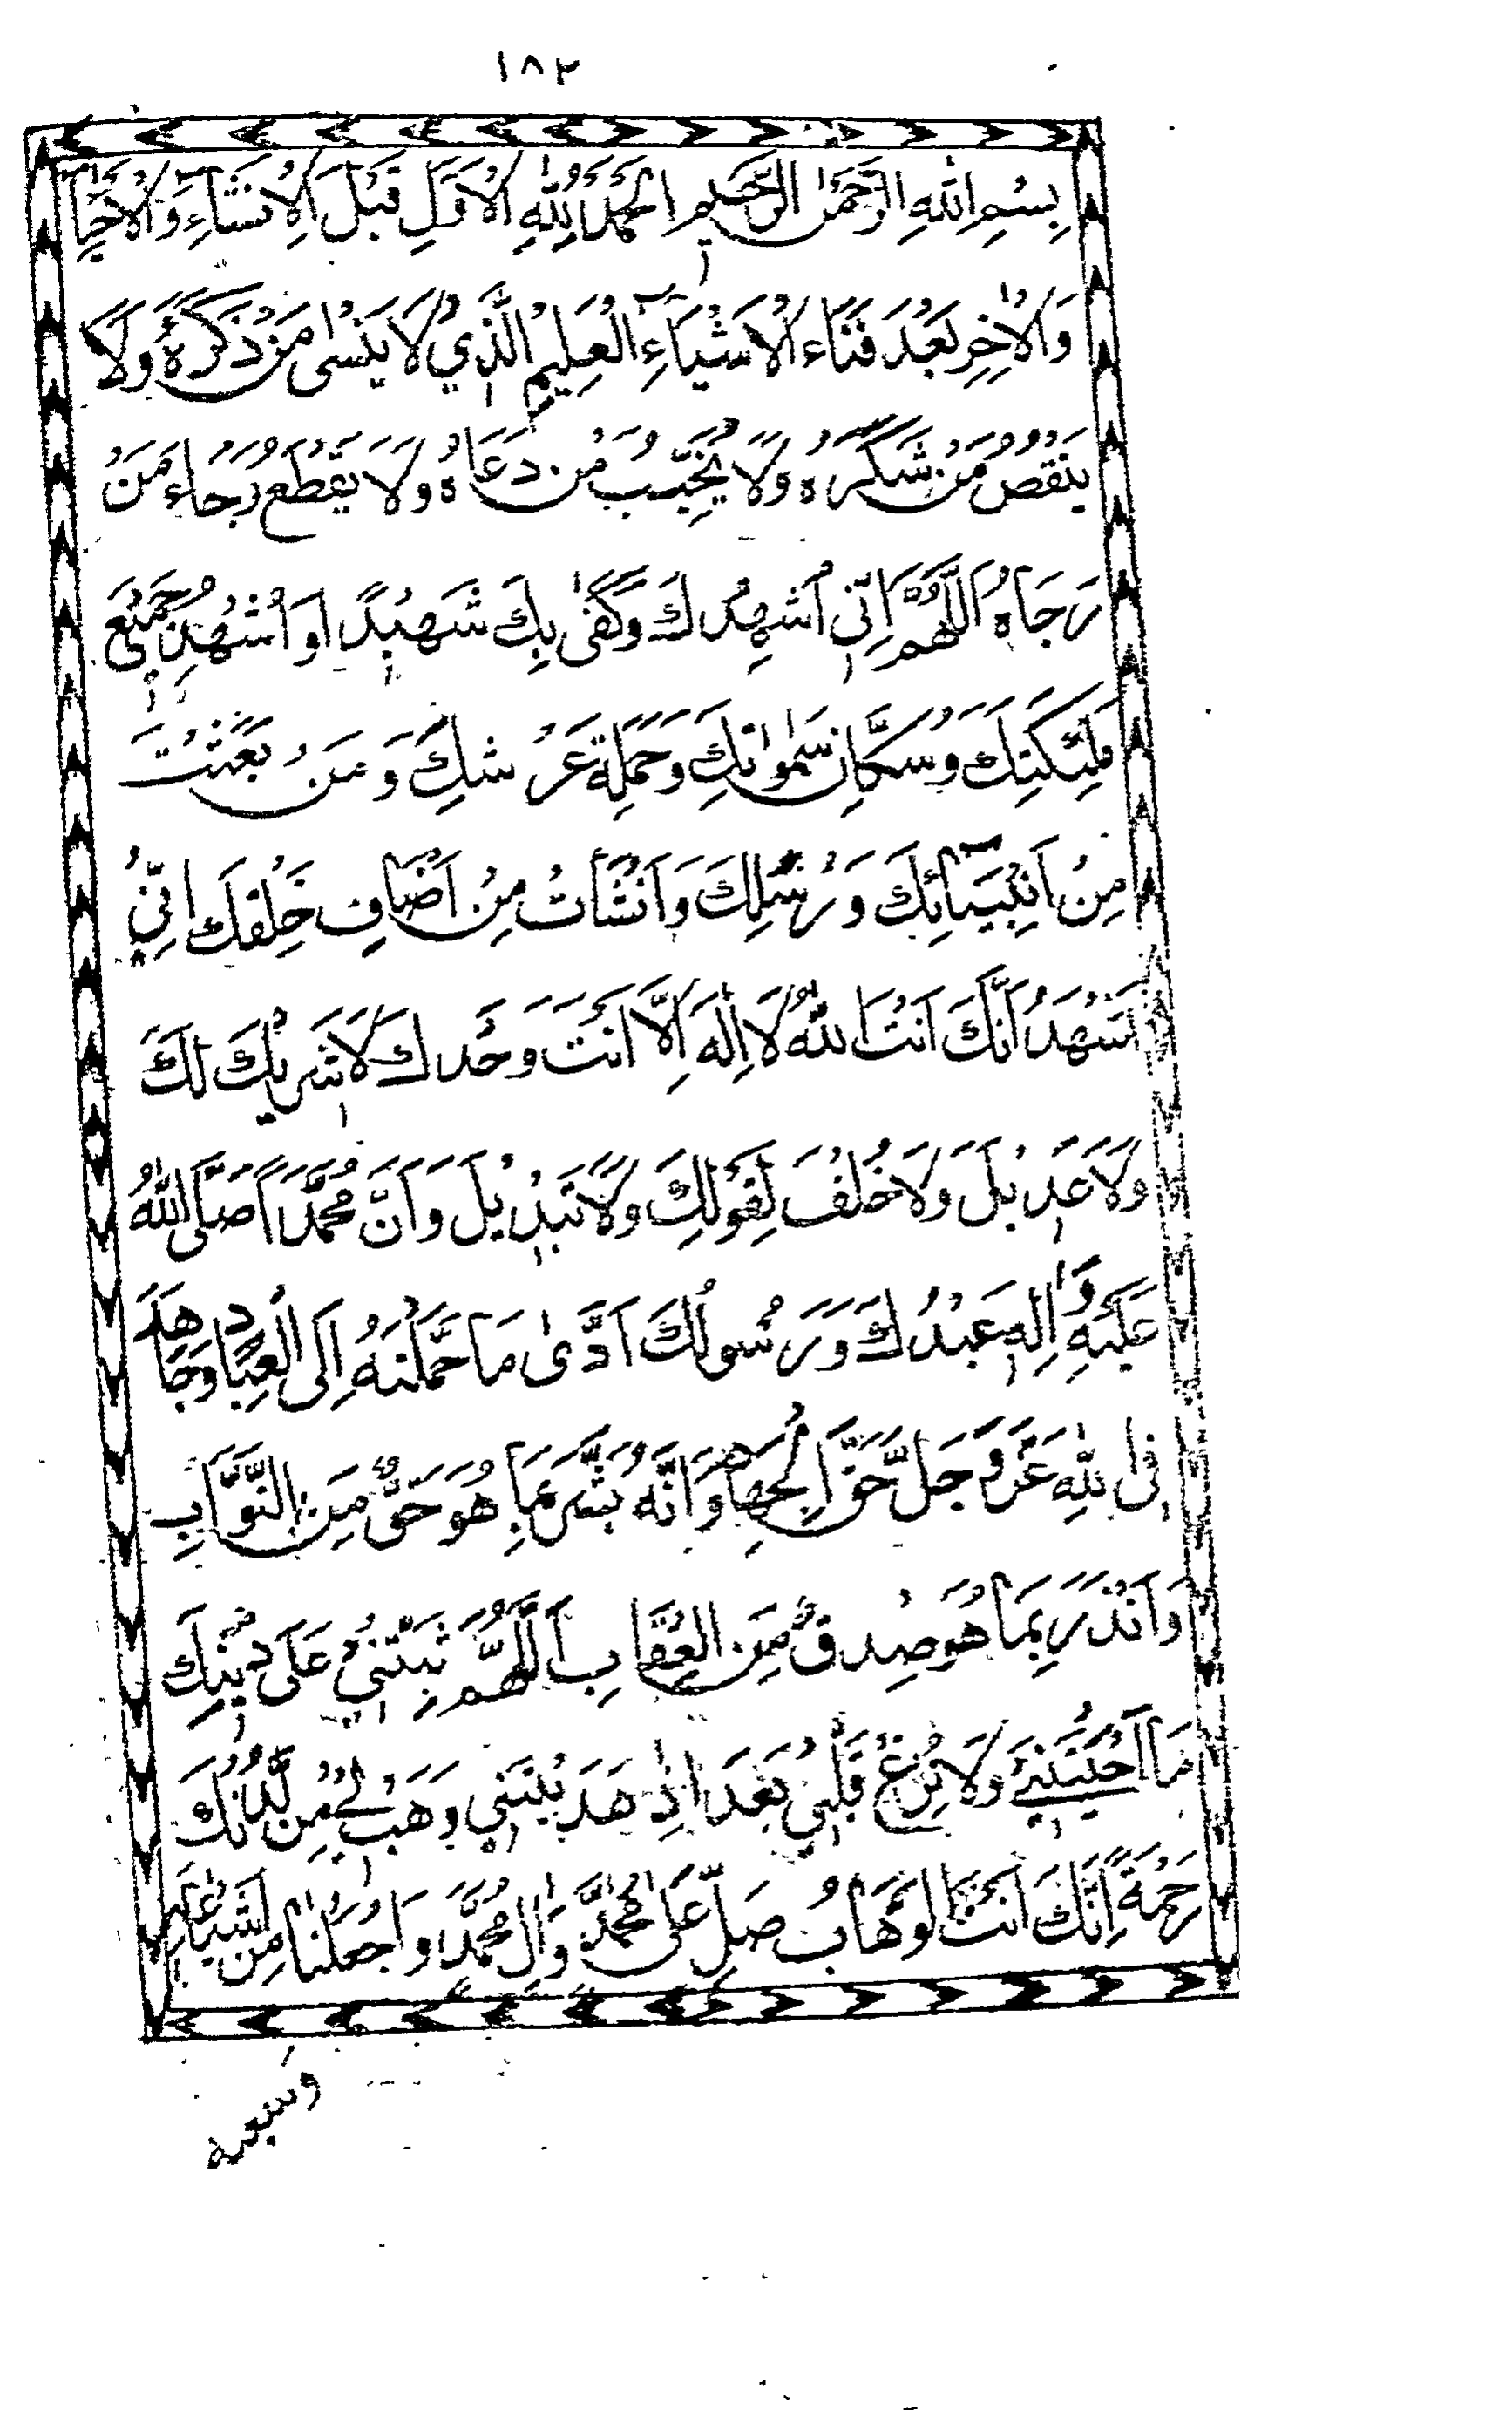 ١٨٢
بِسْمِ اللهِ الرَّحْمٰنِ الرَّحِيْمِ اَلْحَمْدُ لِلّٰهِ الْاَوَّلِ قَبْلَ الْاِنْشَاءِ وَالْاِحْيَاءِ
وَالْاٰخِرِ بَعْدَ فَنَاءِ الْاَشْيَاءِ الْعَلِيْمِ الَّذِيْ لَا يَنْسٰى مَنْ ذَكَرَهُ وَلَا
يَنْقُصُ مَنْ شَكَرَهُ وَلَا يُخَيِّبُ مَنْ دَعَاهُ وَلَا يَقْطَعُ رَجَاءَ مَنْ
رَجَاهُ اَللّٰهُمَّ اِنِّيْ اُشْهِدُكَ وَكَفٰى بِكَ شَهِيْدًا وَاُشْهِدُ جَمِيْعَ
مَلٰئِكَتِكَ وَسُكَّانَ سَمٰوَاتِكَ وَحَمَلَةَ عَرْشِكَ وَمَنْ بَعَثْتَ
مِنْ اَنْبِيَائِكَ وَرُسُلِكَ وَاَنْشَأْتَ مِنْ اَصْنَافِ خَلْقِكَ اِنِّيْ
اَشْهَدُ اَنَّكَ اَنْتَ اللهُ لَا اِلٰهَ اِلَّا اَنْتَ وَحْدَكَ لَا شَرِيْكَ لَكَ
وَلَا عَدِيْلَ وَلَا خُلْفَ لِقَوْلِكَ وَلَا تَبْدِيْلَ وَاَنَّ مُحَمَّدًا صَلَّى اللهُ
عَلَيْهِ وَاٰلِهِ عَبْدُكَ وَرَسُوْلُكَ اَدّٰى مَا حَمَّلْتَهُ اِلَى الْعِبَادِ وَجَاهَدَ
فِى اللهِ عَزَّ وَجَلَّ حَقَّ الْجِهَادِ وَاَنَّهُ بَشَّرَ بِمَا هُوَ حَقٌّ مِنَ الثَّوَابِ
وَاَنْذَرَ بِمَا هُوَ صِدْقٌ مِنَ الْعِقَابِ اَللّٰهُمَّ ثَبِّتْنِيْ عَلٰى دِيْنِكَ
مَا اَحْيَيْتَنِيْ وَلَا تُزِغْ قَلْبِيْ بَعْدَ اِذْ هَدَيْتَنِيْ وَهَبْ لِيْ مِنْ لَدُنْكَ
رَحْمَةً اِنَّكَ اَنْتَ الْوَهَّابُ صَلِّ عَلٰى مُحَمَّدٍ وَاٰلِ مُحَمَّدٍ وَاجْعَلْنَا مِنْ اَشْيَاعِهِ
وشیعه